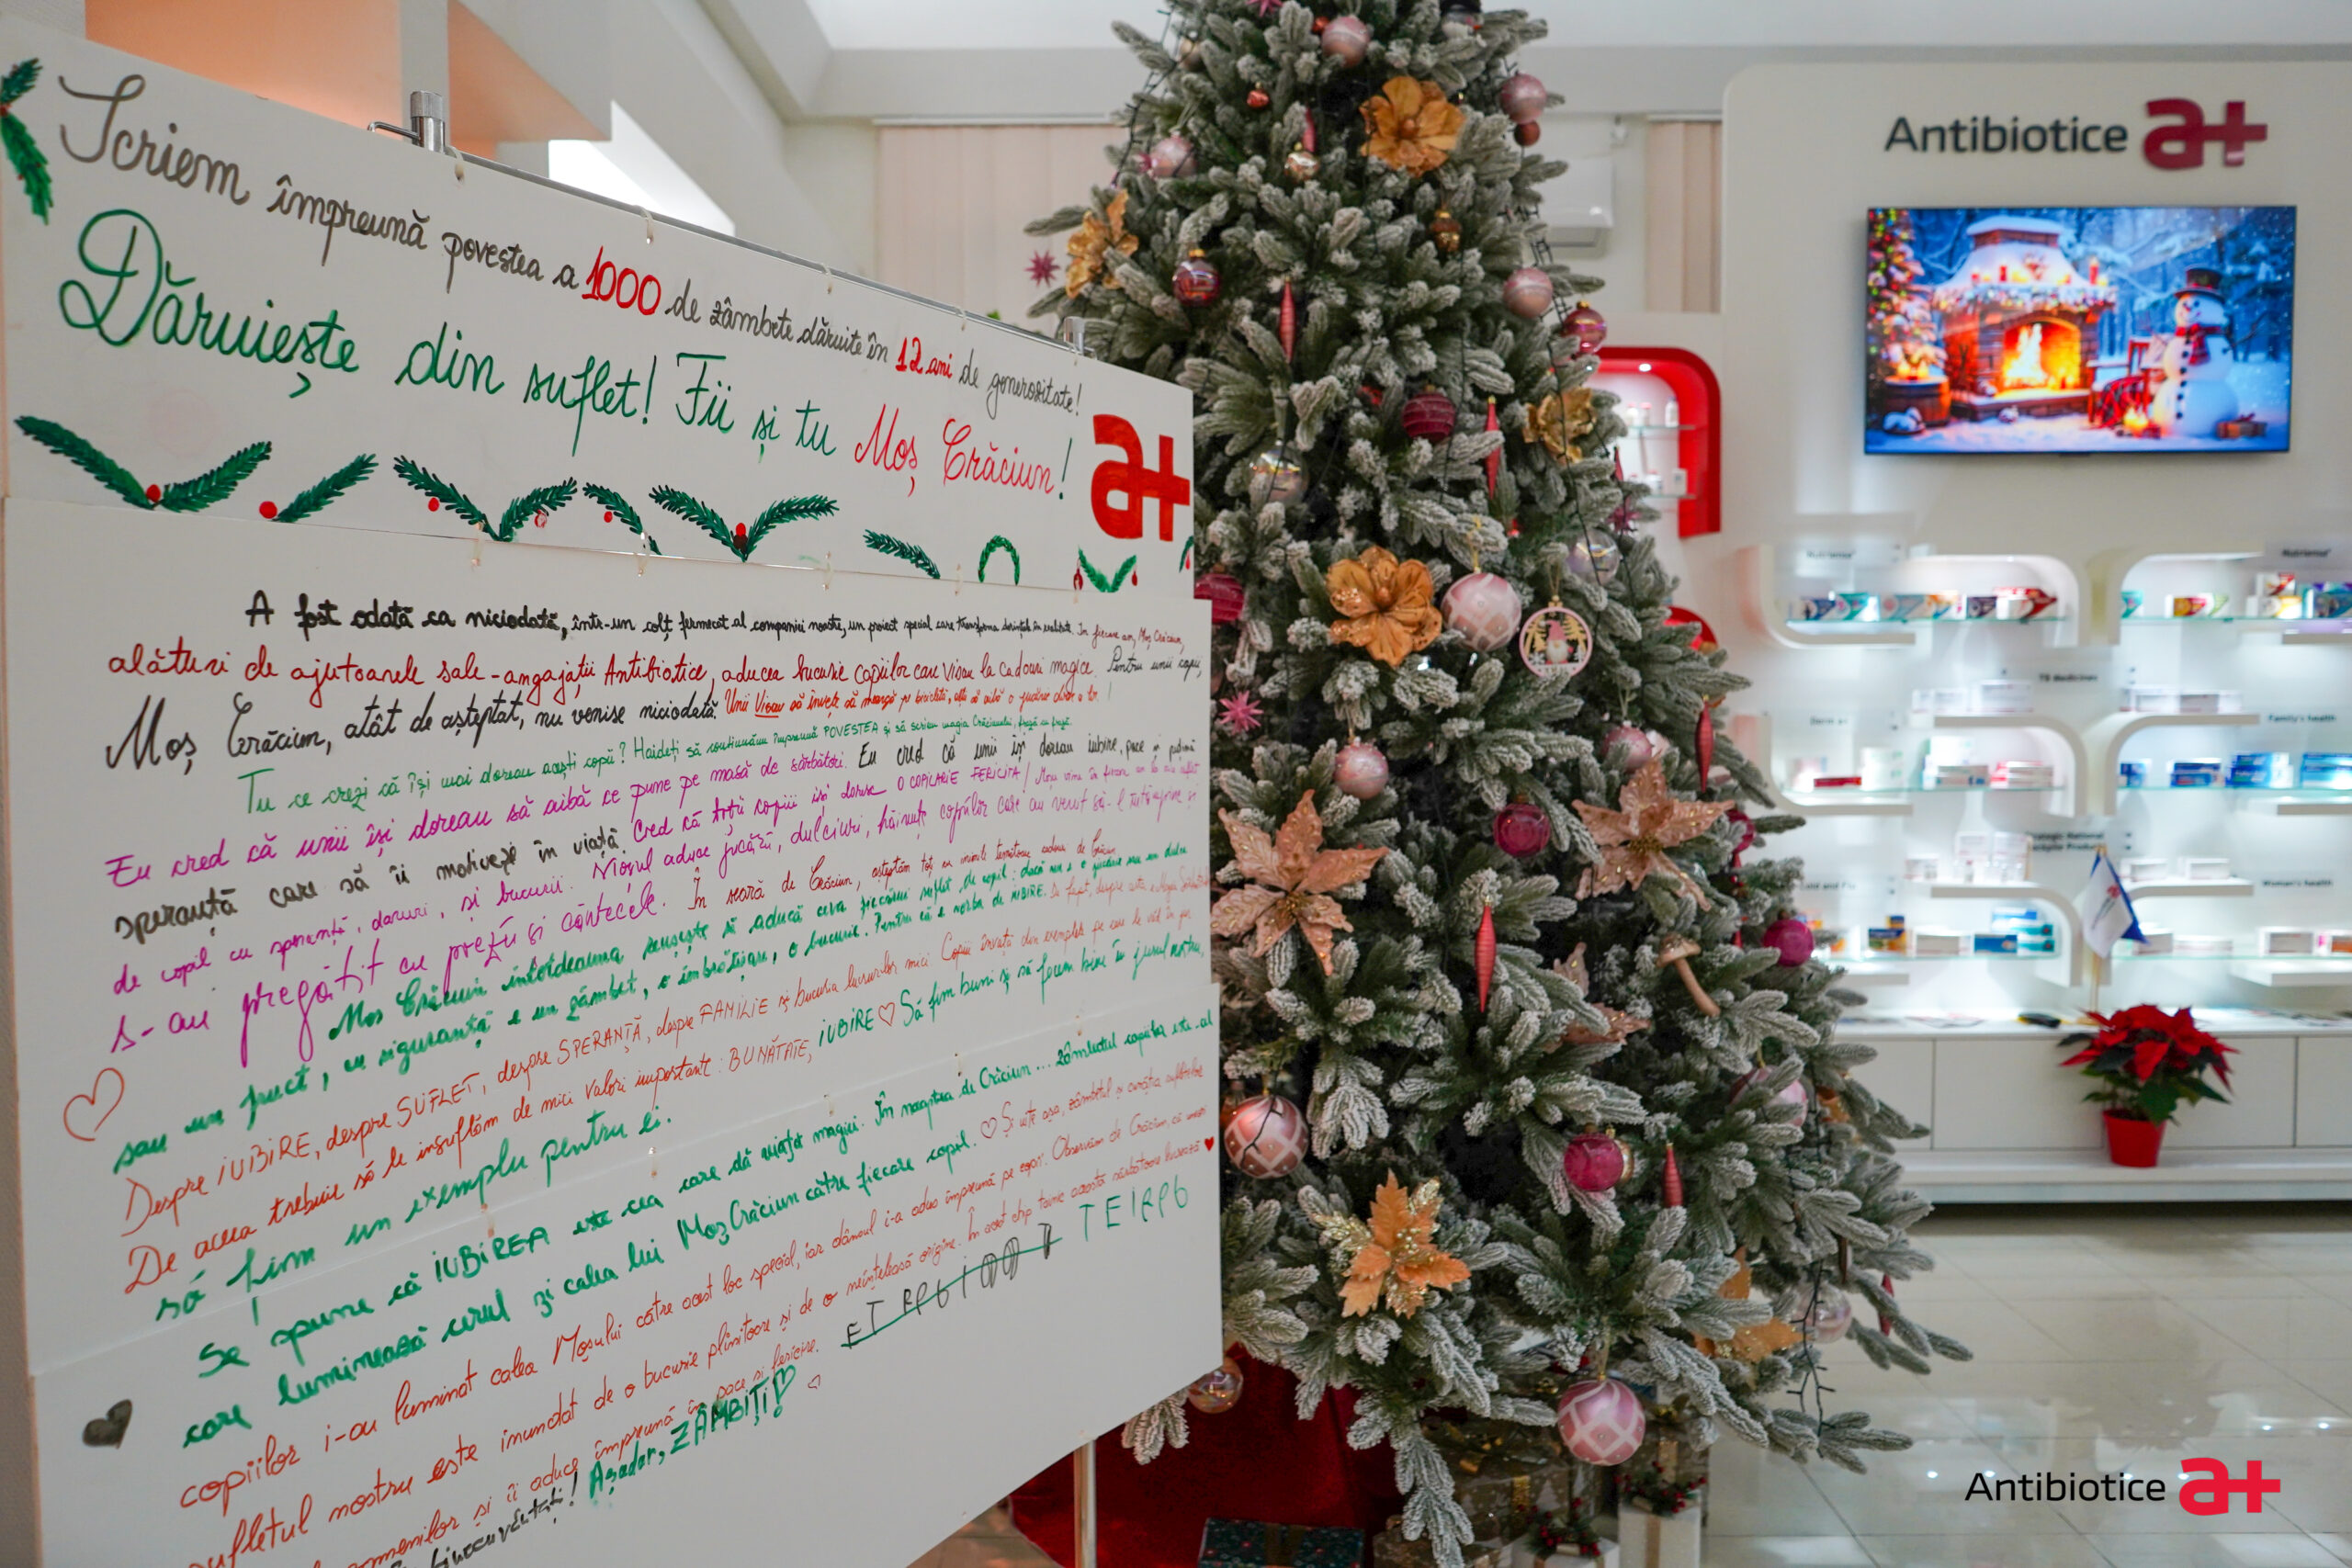 Scriem împreună povestea a 1000 de zâmbete dăruite în 12 ani de generozitate!
Dăruiește din suflet! Fii și tu Moș Crăciun!
a+
A fost odată ca niciodată, într-un colț fermecat al companiei noastre, un proiect special care transforma dorințele în realitate. În fiecare an, Moș Crăciun,
alături de ajutoarele sale - angajații Antibiotice, aducea bucurie copiilor care visau la cadouri magice. Pentru unii copii,
Moș Crăciun, atât de așteptat, nu venise niciodată. Unii visau să învețe să meargă pe bicicletă, alții să aibă o jucărie doar a lor.
Tu ce crezi că își mai doreau acești copii? Haideți să continuăm împreună POVESTEA și să scriem magia Crăciunului, frază cu frază.
Eu cred că unii își doreau să aibă ce pune pe masă de sărbători. Eu cred că unii își doreau iubire, pace și puțină
speranță care să îi motiveze în viață. Cred că toți copiii își doresc O COPILĂRIE FERICITĂ! Moșu vine în fiecare an la
de copil cu speranță, daruri, și bucurii. Moșul aduce jucării, dulciuri, hăinuțe copiilor care au venit să-l întâmpine și
s-au pregătit cu poezii și cântecele. În seară de Crăciun, așteptăm toți cu inimile
Moș Crăciun întotdeauna reușește să aducă ceva fiecărui suflet de copil: dacă nu e o jucărie sau un dulce
sau un fruct, cu siguranță e un zâmbet, o îmbrățișare, o bucurie. Pentru că e vorba de IUBIRE. De fapt, despre asta e Magia
Despre IUBIRE, despre SUFLET, despre SPERANȚĂ, despre FAMILIE și bucuria lucrurilor mici. Copiii învață din exemplele pe care le văd în jur.
De aceea trebuie să le insuflăm de mici valori importante: BUNĂTATE, IUBIRE ♡ Să fim buni și să facem bine în jurul nostru,
să fim un exemplu pentru ei.
Se spune că IUBIREA este cea care dă viață magiei. În noaptea de Crăciun ... zâmbetul copiilor este al
care luminează cerul și calea lui Moș Crăciun către fiecare copil. ♡ Și este așa, zâmbetul și curăția sufletelor
copiilor i-au luminat calea Moșului către acest loc special, iar dânsul i-a adus împreună pe copii. Observăm de Crăciun, că
sufletul nostru este inundat de o bucurie plinitoare și de o neînțeleasă origine. În acest chip tainic această sărbătoare
oamenilor și îi aduce împreună în pace și fericire.
Așadar, ZÂMBIȚI!
Antibiotice a+
Nutriensa
Nutriensa
TB Medicines
Derm a+
Family's health
Woman's health
Antibiotice a+